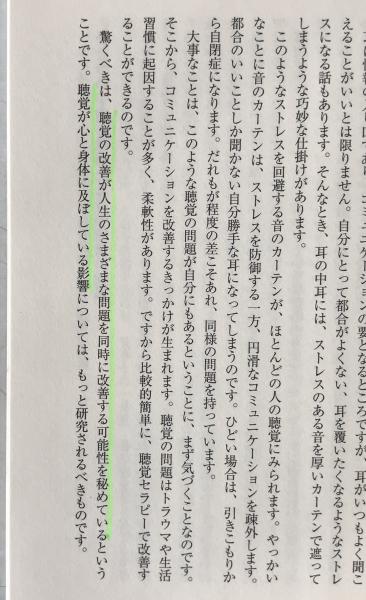 コミュニケーションの要となるところですが、耳がいつもよく聞こ
えることがいいとは限りません。自分にとって都合がよくない、耳を覆いたくなるようなストレ
スになる話もあります。そんなとき、耳の中耳には、ストレスのある音を厚いカーテンで遮って
しまうような巧妙な仕掛けがあります。
このようなストレスを回避する音のカーテンが、ほとんどの人の聴覚にみられます。やっかい
なことに音のカーテンは、ストレスを防御する一方、円滑なコミュニケーションを疎外します。
都合のいいことしか聞かない自分勝手な耳になってしまうのです。ひどい場合は、引きこもりか
ら自閉症になります。だれもが程度の差こそあれ、同様の問題を持っています。
大事なことは、このような聴覚の問題が自分にもあるということに、まず気づくことなのです。
そこから、コミュニケーションを改善するきっかけが生まれます。聴覚の問題はトラウマや生活
習慣に起因することが多く、柔軟性があります。ですから比較的簡単に、聴覚セラピーで改善す
ることができるのです。
驚くべきは、聴覚の改善が人生のさまざまな問題を同時に改善する可能性を秘めているという
ことです。聴覚が心と身体に及ぼしている影響については、もっと研究されるべきものです。